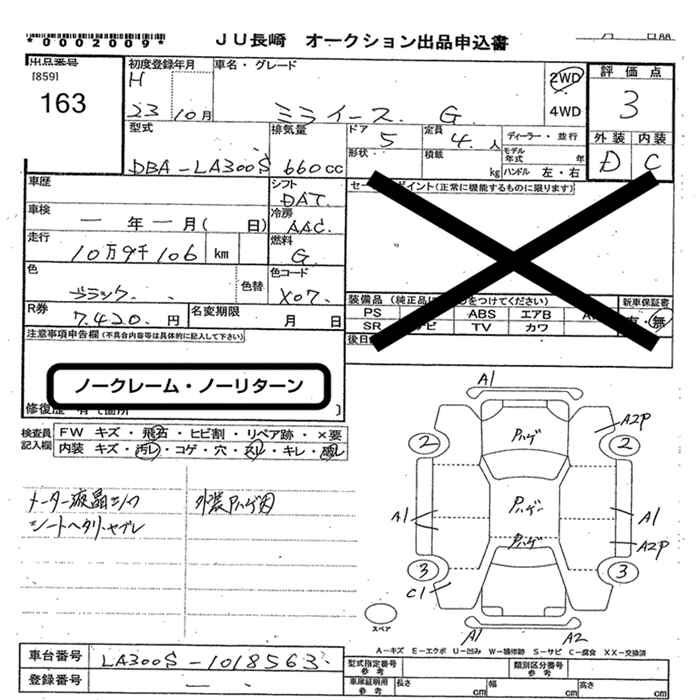 *0002009*
JU長崎 オークション出品申込書
月 日
出品番号
[859]
163
初度登録年月
H
23 10月
車名・グレード
ミライース G
2WD
4WD
評価点
3
外装 内装
D C
型式
DBA-LA300S
排気量
660cc
ドア 5
形状
定員 4.人
積載 kg
ディーラー・並行
モデル年式 年
ハンドル 左・右
車歴
シフト
DAT.
セールスポイント(正常に機能するものに限ります)
車検
一年一月( 日)
冷房
AAC.
走行
10万9千106 km
燃料
G
色
ブラック
色替
色コード
X07.
装備品(純正品に○をつけてください)
新車保証書
有・無
PS ABS エアB
SR ナビ TV カワ
R券
7.420.円
名変期限
月 日
注意事項申告欄(不具合内容等は具体的に記入して下さい)
ノークレーム・ノーリターン
修復歴 有
検査員記入欄
FW キズ・飛石・ヒビ割・リペア跡・×要
内装 キズ・汚レ・コゲ・穴・スレ・キレ・破レ
メーター液晶
シートヘタリ・ヤブレ
外装Pハゲ
A1
Pハゲ
A2P
2
2
Pハゲ
A1
A1
Pハゲ
A2P
3
3
C1
スペア
A1
A2
A-キズ E-エクボ U-凹み W-補修跡 S-サビ C-腐食 XX-交換済
車台番号
LA300S-1018563
登録番号
型式指定番号 参考
類別区分番号 参考
車庫証明用 参考
長さ cm
幅 cm
高さ cm